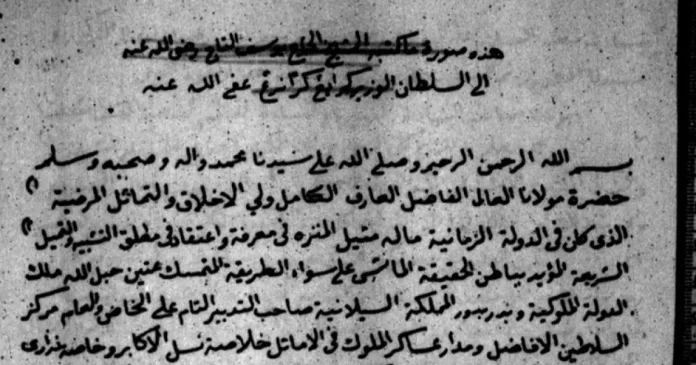 هذه صورة ما كتبه الشيخ الحاج يوسف التاج رضي الله عنه
الى السلطان الوزير كراغ كرانرغ عفى الله عنه
بسم الله الرحمن الرحيم وصلى الله على سيدنا محمد واله وصحبه وسلم
حضرة مولانا العالم الفاضل العارف الكامل ولي الاخلاق والتمائل المرضية
الذى كان فى الدولة الزمانية ماله مثيل المنزه فى معرفة واعتقاد فى مطلق التشبيه والتمثيل
الشريعة المؤيد بباطن الحقيقة الماشى على سواء الطريقة المتمسك بمتين حبل الله ملك
الدولة الملوكية وبدر بدور المملكة السيلانية صاحب التدبير التام على الخاص والعام مركز
السلاطين الافاضل ومدار عساكر الملوك فى الاماثل خلاصة نسل الاكابر وخاصة